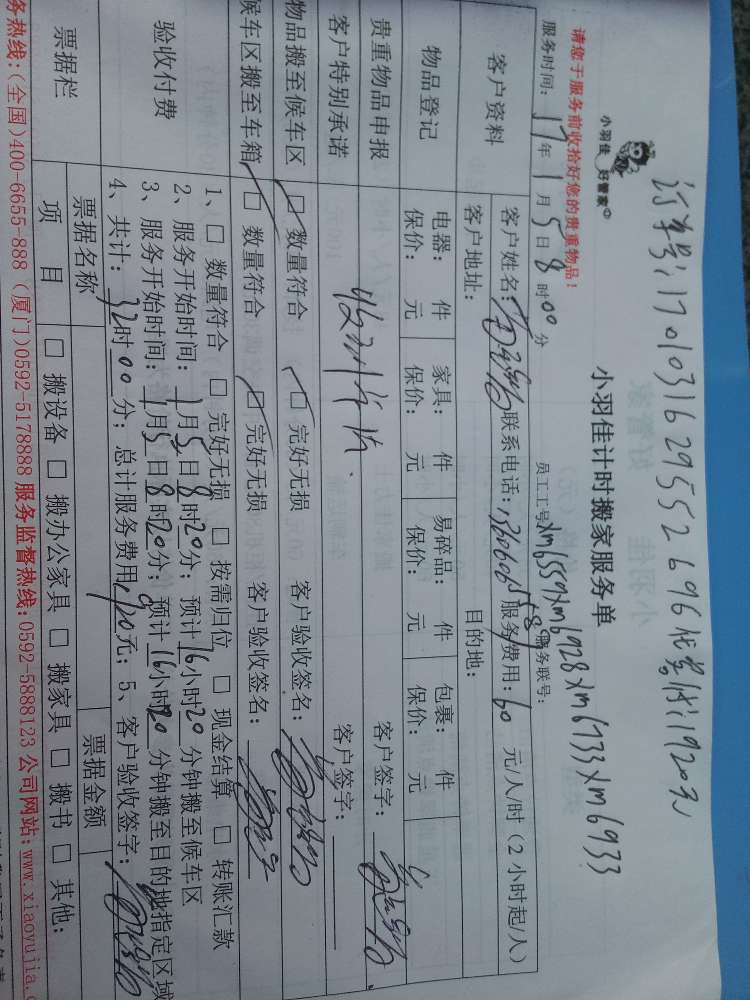 订单号:1701031629552696
1920元
小羽佳 好管家
小羽佳计时搬家服务单
请您于服务前收拾好您的贵重物品!
员工工号: xm6559 xm6928 xm6733 xm6933
服务时间: 17年1月5日8时00分
服务联号:
客户资料
客户姓名: 联系电话: 服务费用: 60 元/人/时(2小时起/人)
客户地址: 目的地:
物品登记
电器: 件 家具: 件 易碎品: 件 包裹: 件
保价: 元 保价: 元 保价: 元 保价: 元
贵重物品申报
客户签字:
客户特别承诺
客户签字:
物品搬至候车区
□ 数量符合 □ 完好无损 客户验收签名:
候车区搬至车箱
□ 数量符合 □ 完好无损 客户验收签名:
验收付费
1、□ 数量符合 □ 完好无损 □ 按需归位 □ 现金结算 □ 转账汇款
2、服务开始时间: 1月5日8时20分; 预计16小时20分钟搬至候车区
3、服务开始时间: 1月5日8时20分; 预计16小时20分钟搬至目的地指定区域
4、共计: 32时00分; 总计服务费用1920元; 5、客户验收签字:
票据栏
票据名称 票据金额
项 目 □ 搬设备 □ 搬办公家具 □ 搬家具 □ 搬书 □ 其他:
务热线:(全国)400-6655-888 (厦门)0592-5178888 服务监督热线:0592-5888123 公司网站:www.xiaoyujia.c